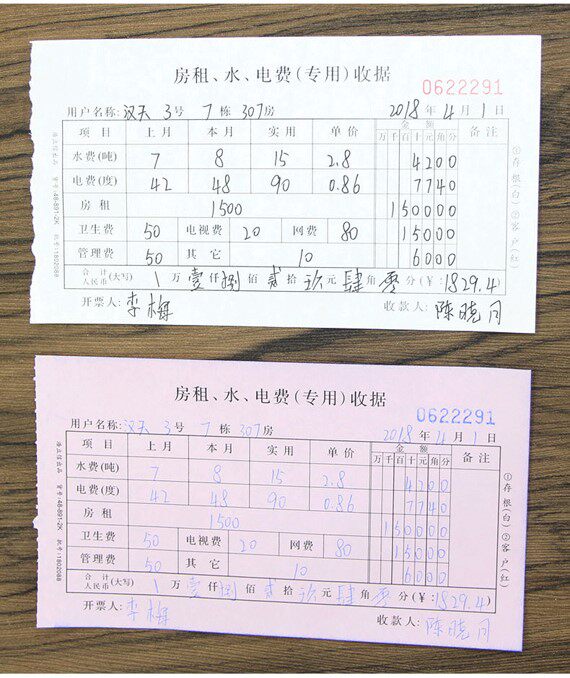 房租、水、电费(专用)收据
0622291
用户名称:汉天 3号 7 栋 307房 2018 年 4 月 1 日
项目 上月 本月 实用 单价 金额 备注
万 千 百 十 元 角 分
水费(吨) 7 8 15 2.8 4200
电费(度) 42 48 90 0.86 7740
房租 1500 150000
卫生费 50 电视费 20 网费 80 15000
管理费 50 其它 10 6000
合计人民币(大写) 万 壹仟 捌佰 贰拾 玖元 肆角 零分(¥:1829.4)
开票人:李梅 收款人:陈晓月
①存根(白)②客户(红)
货号:48-891-2K
房租、水、电费(专用)收据
0622291
用户名称:汉天 3号 7 栋 307房 2018 年 4 月 1 日
项目 上月 本月 实用 单价 金额 备注
万 千 百 十 元 角 分
水费(吨) 7 8 15 2.8 4200
电费(度) 42 48 90 0.86 7740
房租 1500 150000
卫生费 50 电视费 20 网费 80 15000
管理费 50 其它 10 6000
合计人民币(大写) 万 壹仟 捌佰 贰拾 玖元 肆角 零分(¥:1829.4)
开票人:李梅 收款人:陈晓月
①存根(白)②客户(红)
货号:48-891-2K